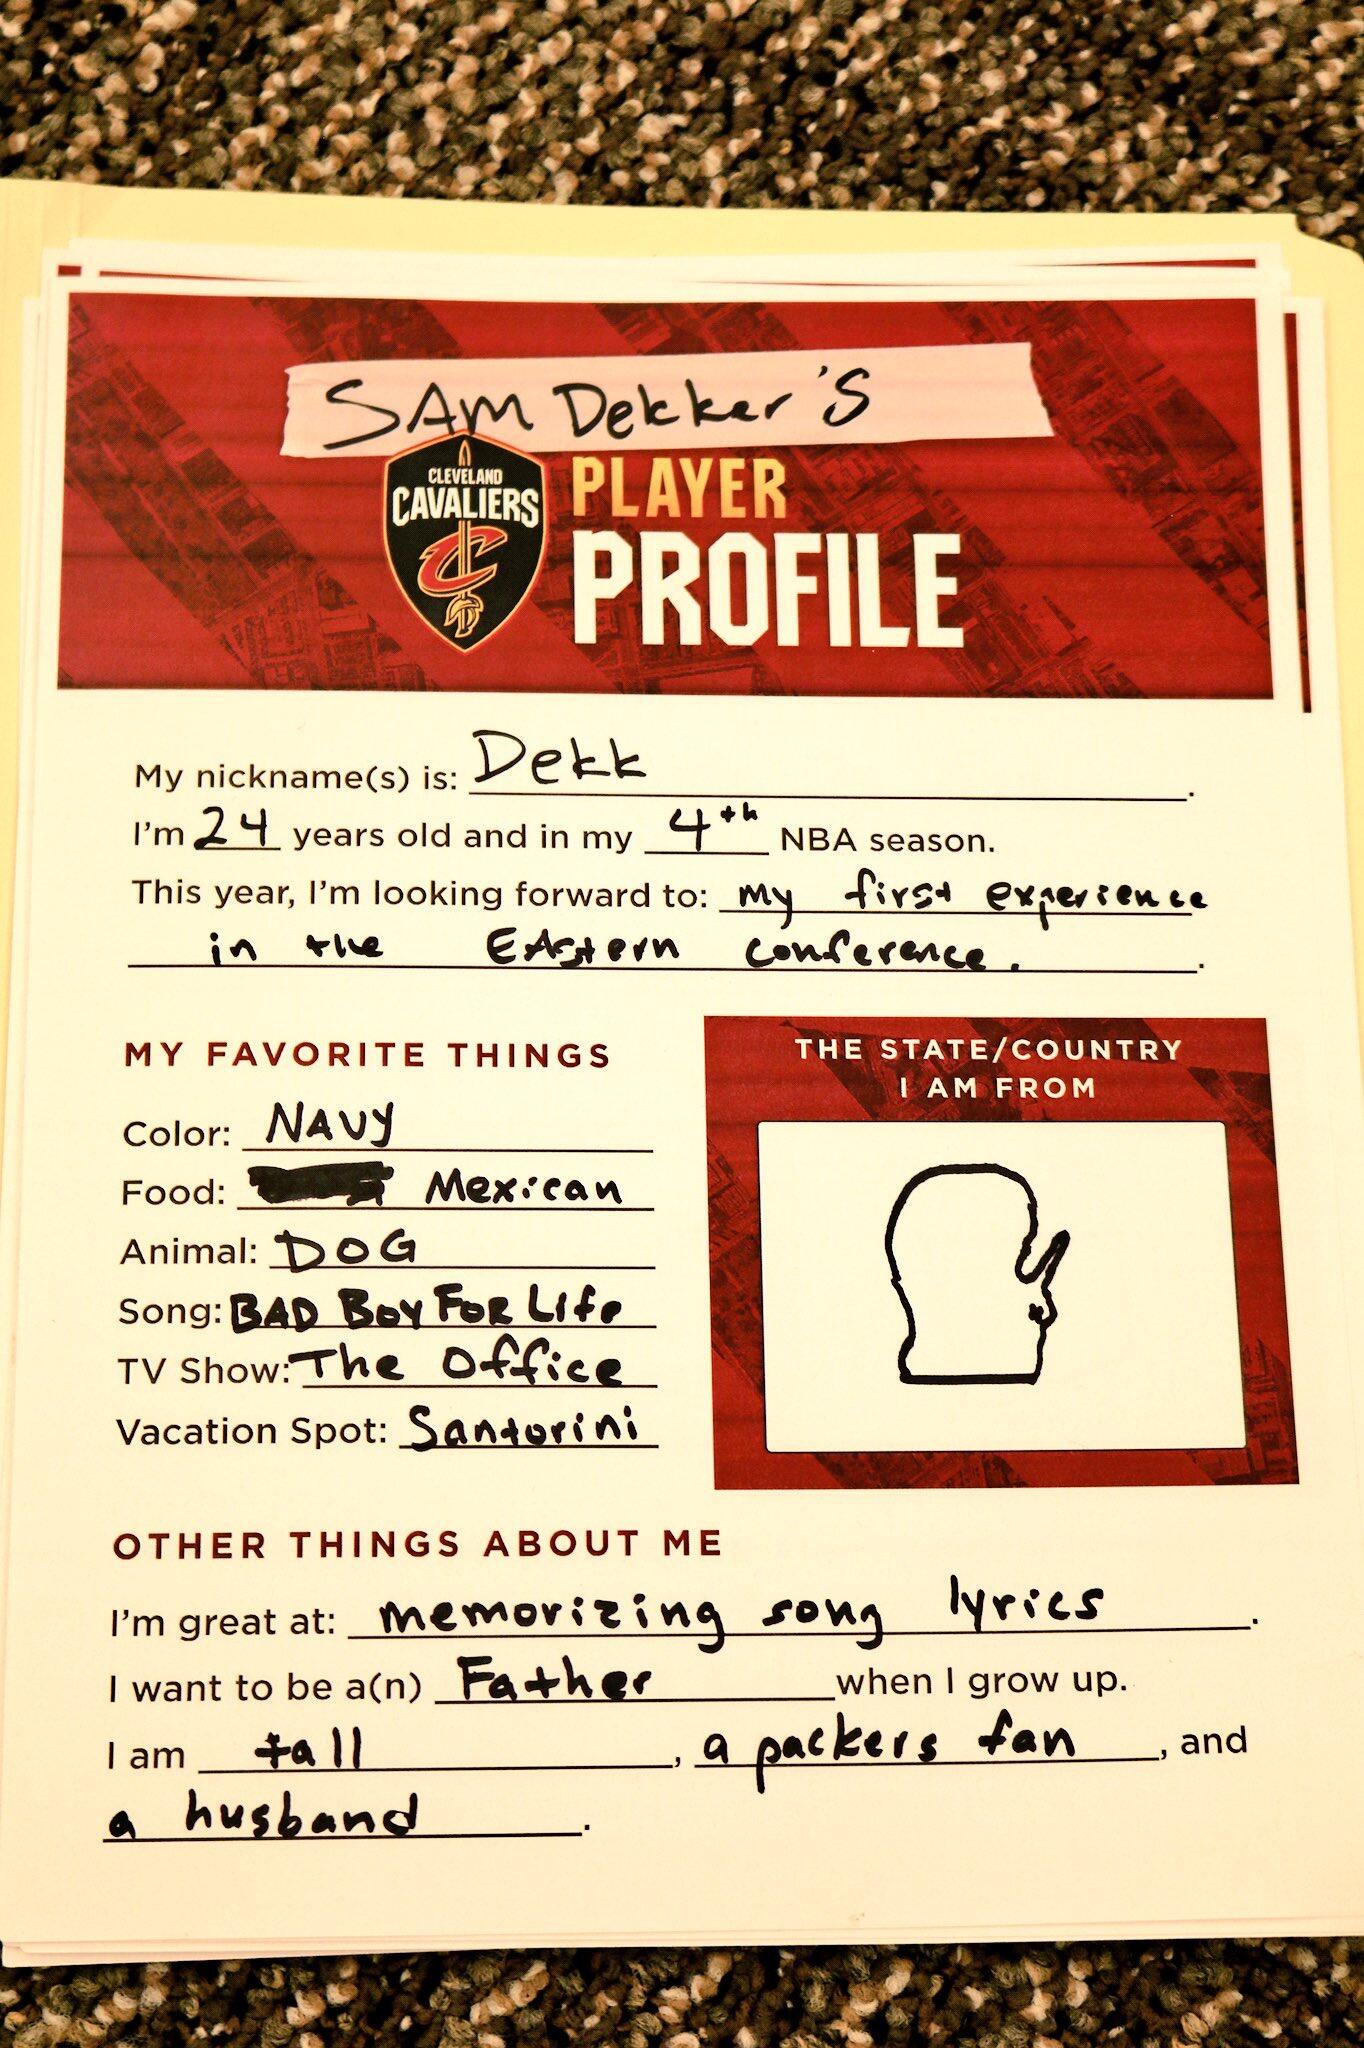 SAM Dekker's
CLEVELAND
CAVALIERS
C
PLAYER
PROFILE
My nickname(s) is: Dekk.
I'm 24 years old and in my 4th NBA season.
This year, I'm looking forward to: my first experience
in the Eastern conference..
MY FAVORITE THINGS
Color: NAVY
Food: Mexican
Animal: DOG
Song: BAD BOY FOR Life
TV Show: The Office
Vacation Spot: Santorini
THE STATE/COUNTRY
I AM FROM
OTHER THINGS ABOUT ME
I'm great at: memorizing song lyrics.
I want to be a(n) Father when I grow up.
I am tall, a packers fan, and
a husband.